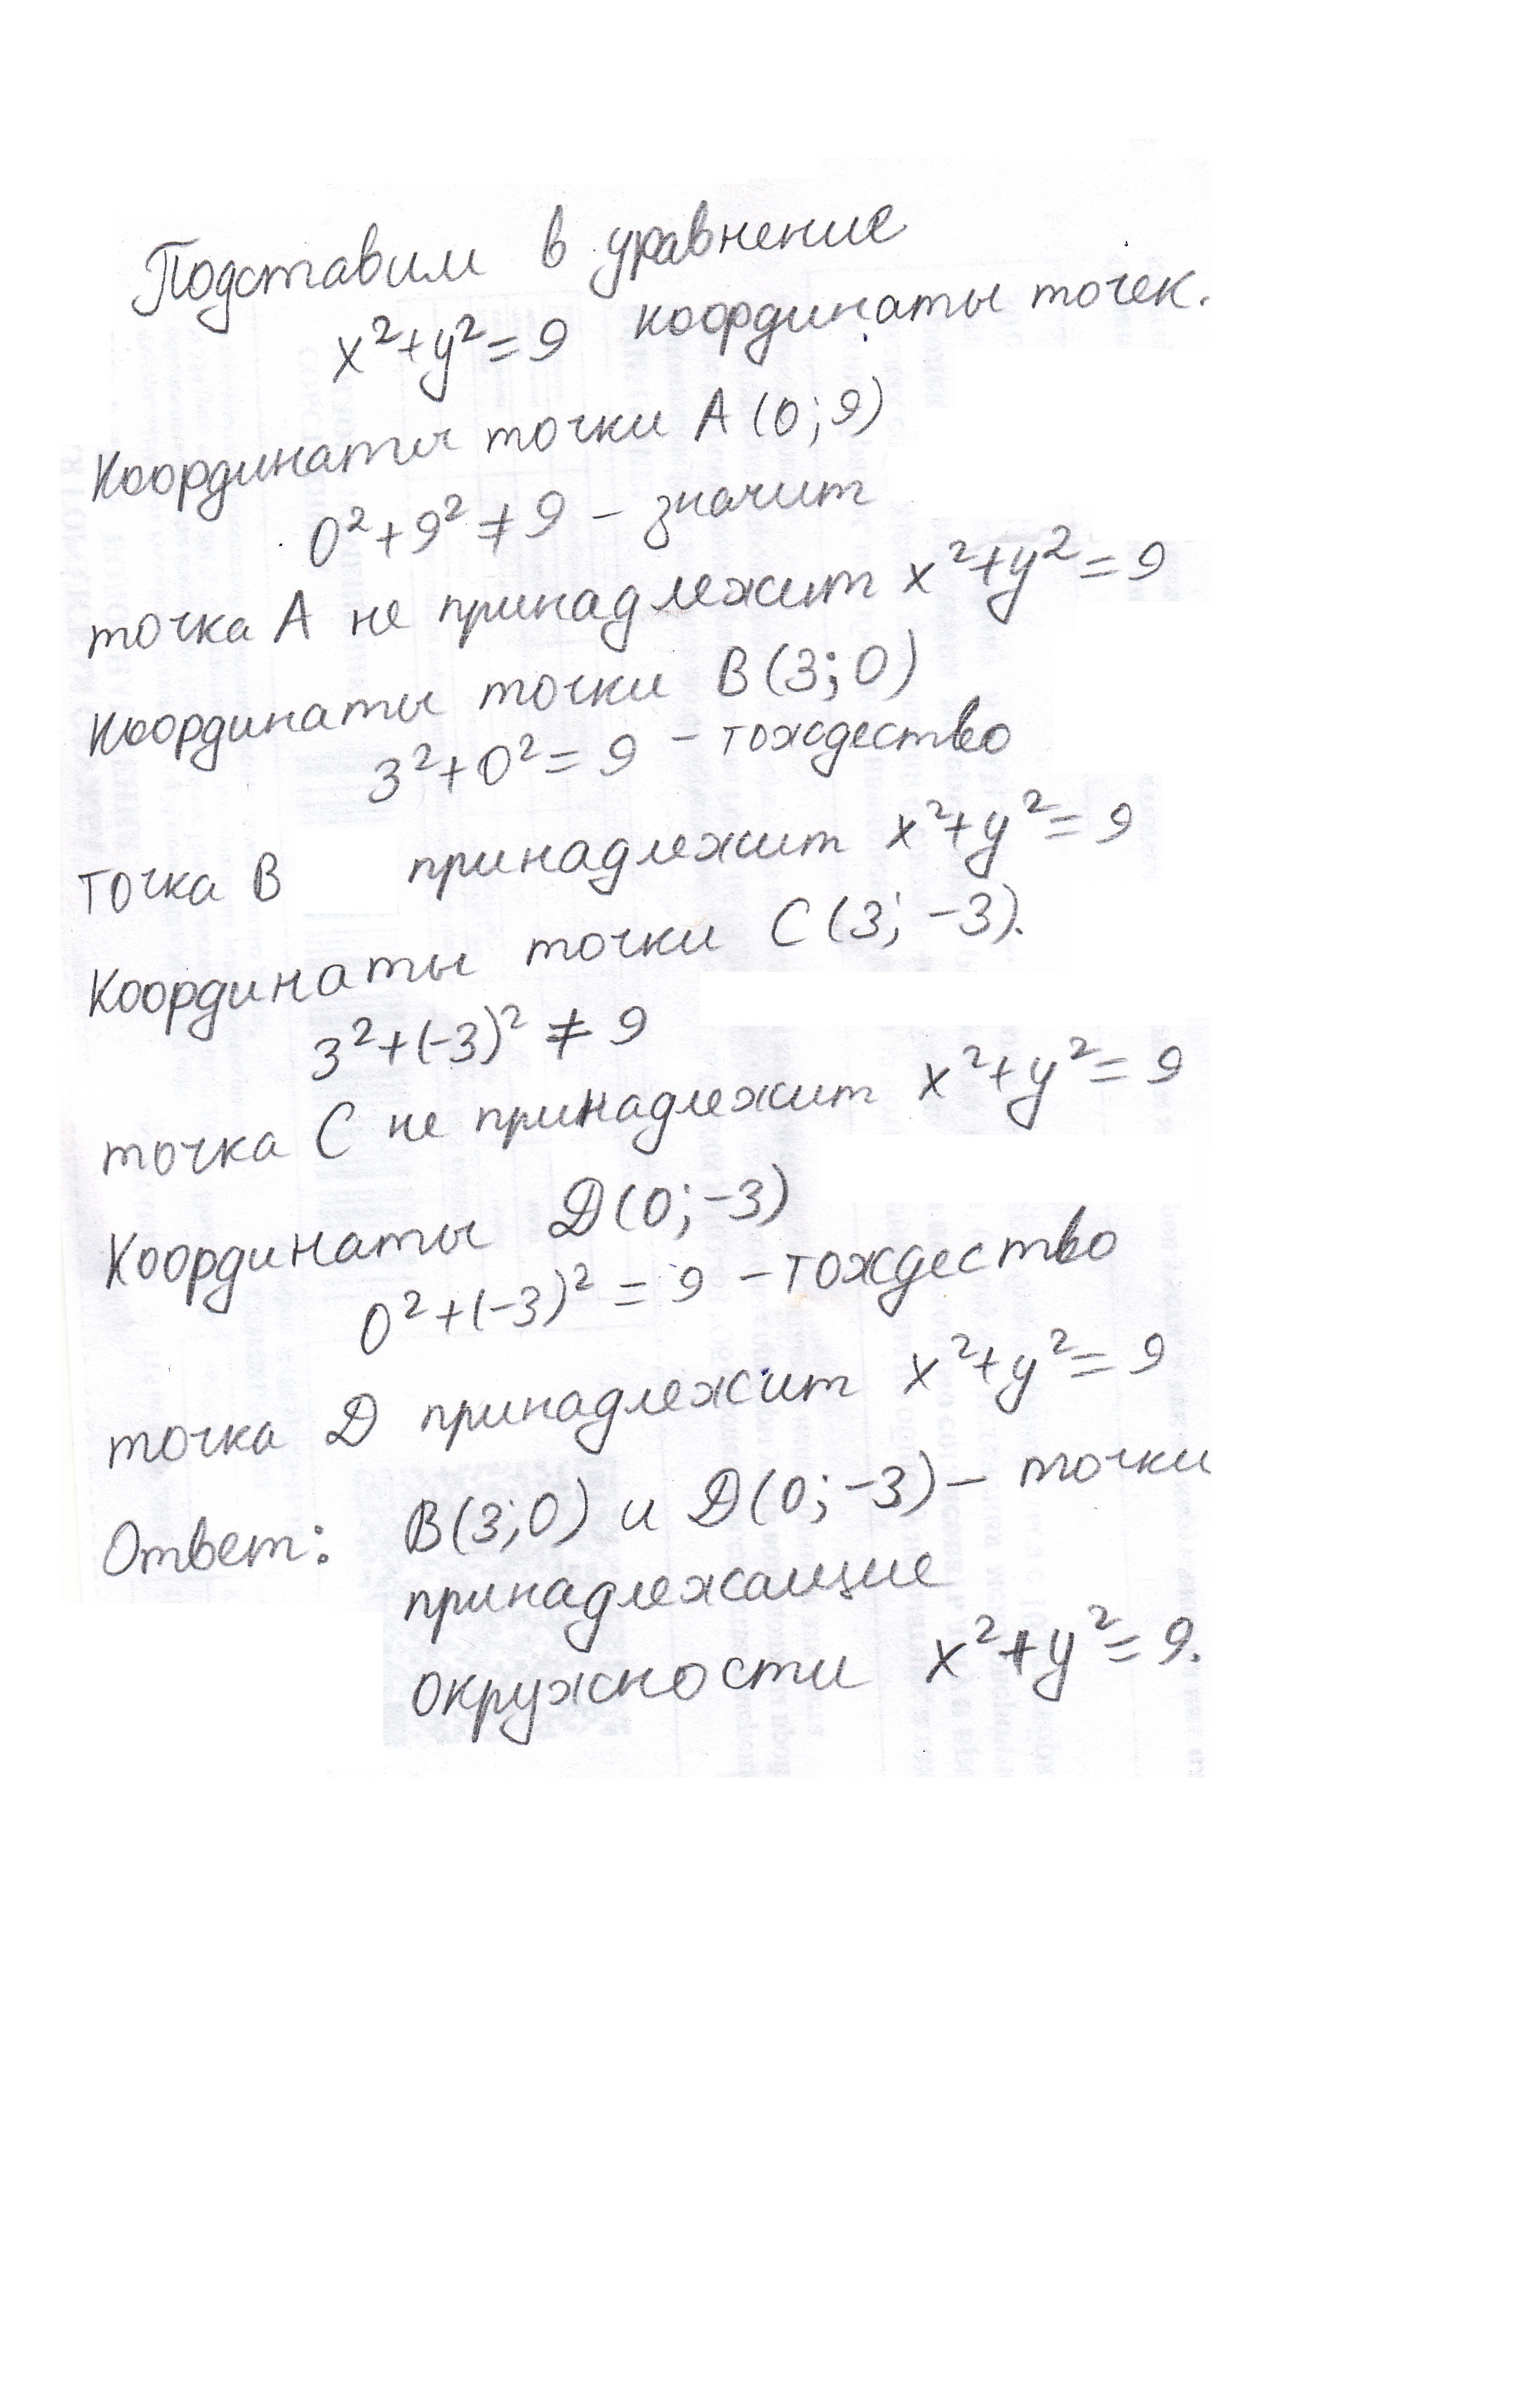 Подставим в уравнение
x²+y²=9 координаты точек.
Координаты точки A(0;9)
0²+9²≠9 – значит
точка A не принадлежит x²+y²=9
Координаты точки B(3;0)
3²+0²=9 – тождество
точка B принадлежит x²+y²=9
Координаты точки C(3;-3).
3²+(-3)²≠9
точка C не принадлежит x²+y²=9
Координаты D(0;-3)
0²+(-3)²=9 – тождество
точка D принадлежит x²+y²=9
Ответ: B(3;0) и D(0;-3) – точки
принадлежащие
окружности x²+y²=9.